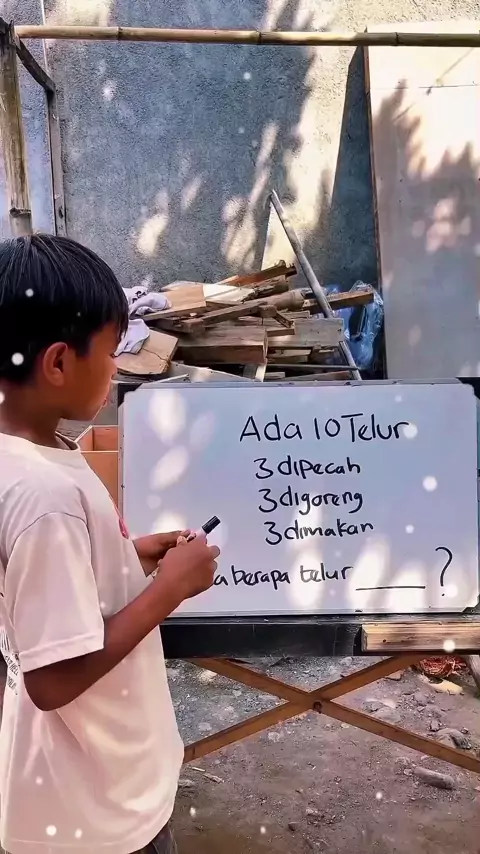 Ada 10 Telur
3 dipecah
3 digoreng
3 dimakan
berapa telur ____ ?